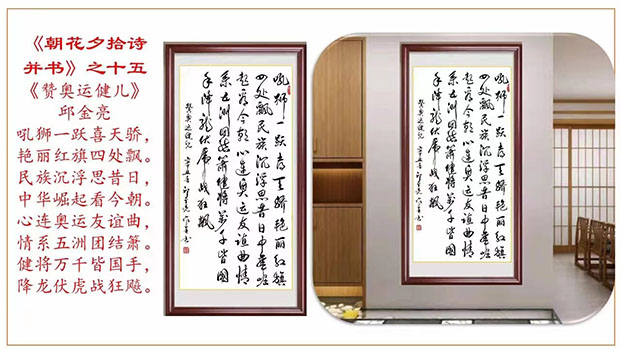 《朝花夕拾诗
并书》之十五
《赞奥运健儿》
邱金亮
吼狮一跃喜天骄，
艳丽红旗四处飘。
民族沉浮思昔日，
中华崛起看今朝。
心连奥运友谊曲，
情系五洲团结萧。
健将万千皆国手，
降龙伏虎战狂飚。
吼狮一跃喜天骄艳丽红旗
四处飘民族沉浮思昔日中华崛
起看今朝心连奥运友谊曲情
系五洲团结萧健将万千皆国
手降龙伏虎战狂飚
赞奥运健儿
吼狮一跃喜天骄艳丽红旗
四处飘民族沉浮思昔日中华崛
起看今朝心连奥运友谊曲情
系五洲团结萧健将万千皆国
手降龙伏虎战狂飚
赞奥运健儿